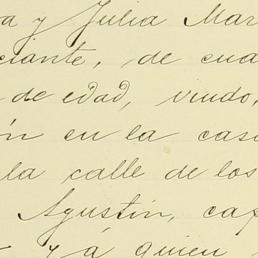 a y Julia Mar
ciante, de cua
de edad, viudo,
ón en la cas
la calle de los
Agustín, cap
y á quien